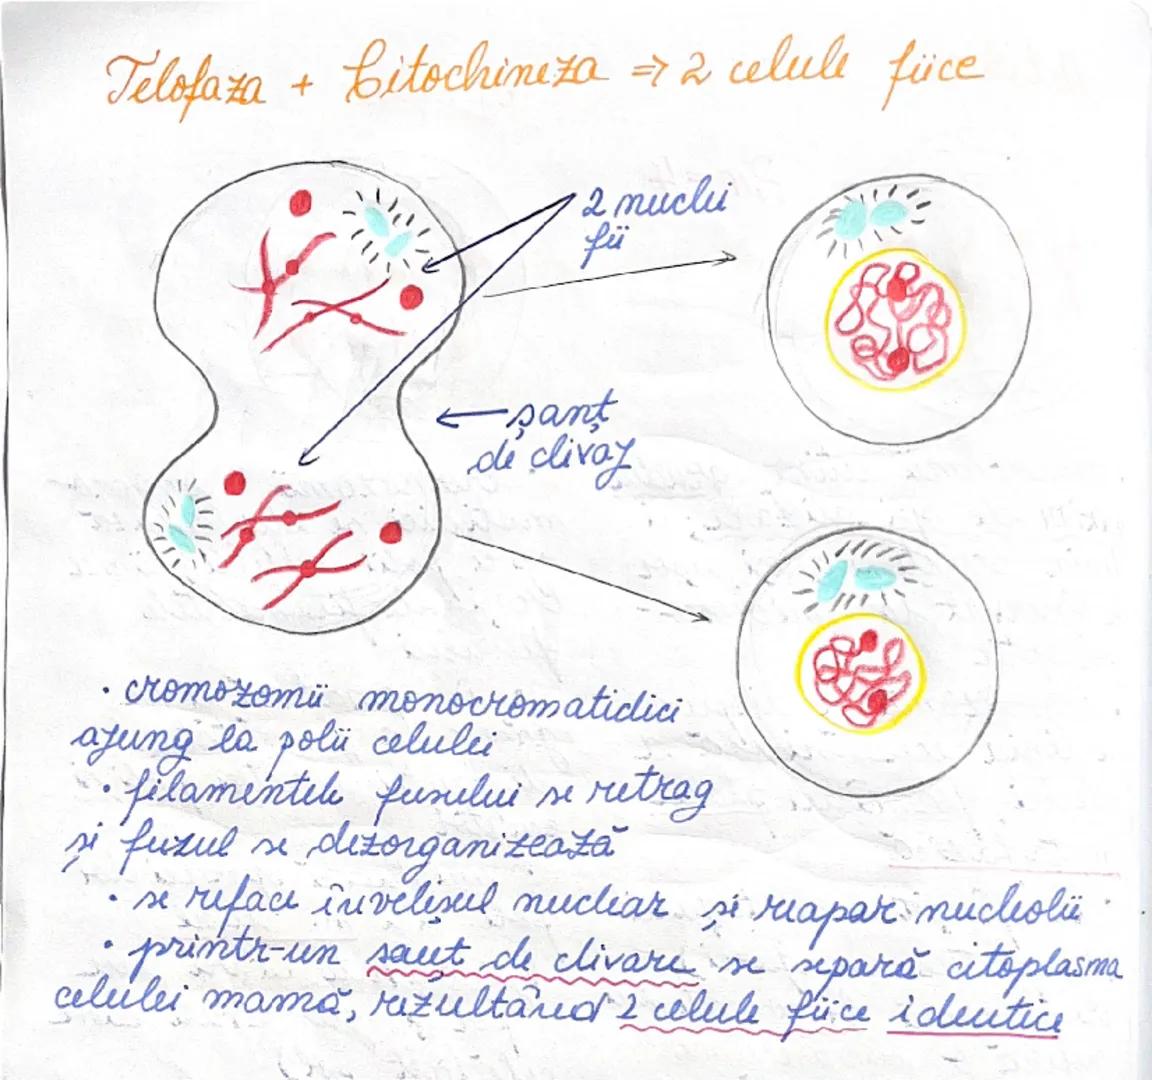 Telofaza + Citochineza => 2 celule fiice
2 nuclei
fii
șanț
de clivaj
• cromozomii monocromatidici
ajung la polii celulei
• filamentele fusului se retrag
și fuzul se dezorganizează
• se reface învelișul nuclear și reapar nucleolii
• printr-un șanț de clivare se separă citoplasma
celulei mamă, rezultând 2 celule fiice identice